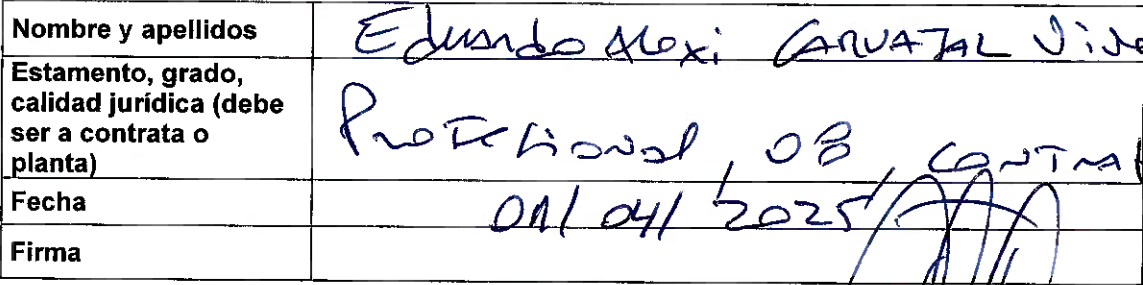 Nombre y apellidos Eduardo Alexi CARVAJAL
Estamento, grado,
calidad jurídica (debe
ser a contrata o
planta) Profesional, 08,
Fecha 01/04/2025
Firma